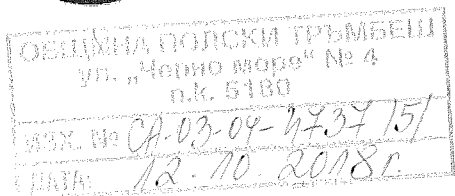 ОБЩИНА ПОЛСКИ ТРЪМБЕШ
ул. „Черно море“ № 4
п.к. 5180
ИЗХ. № СА-03-04-4737/5/
ДАТА: 12.10.2018г.